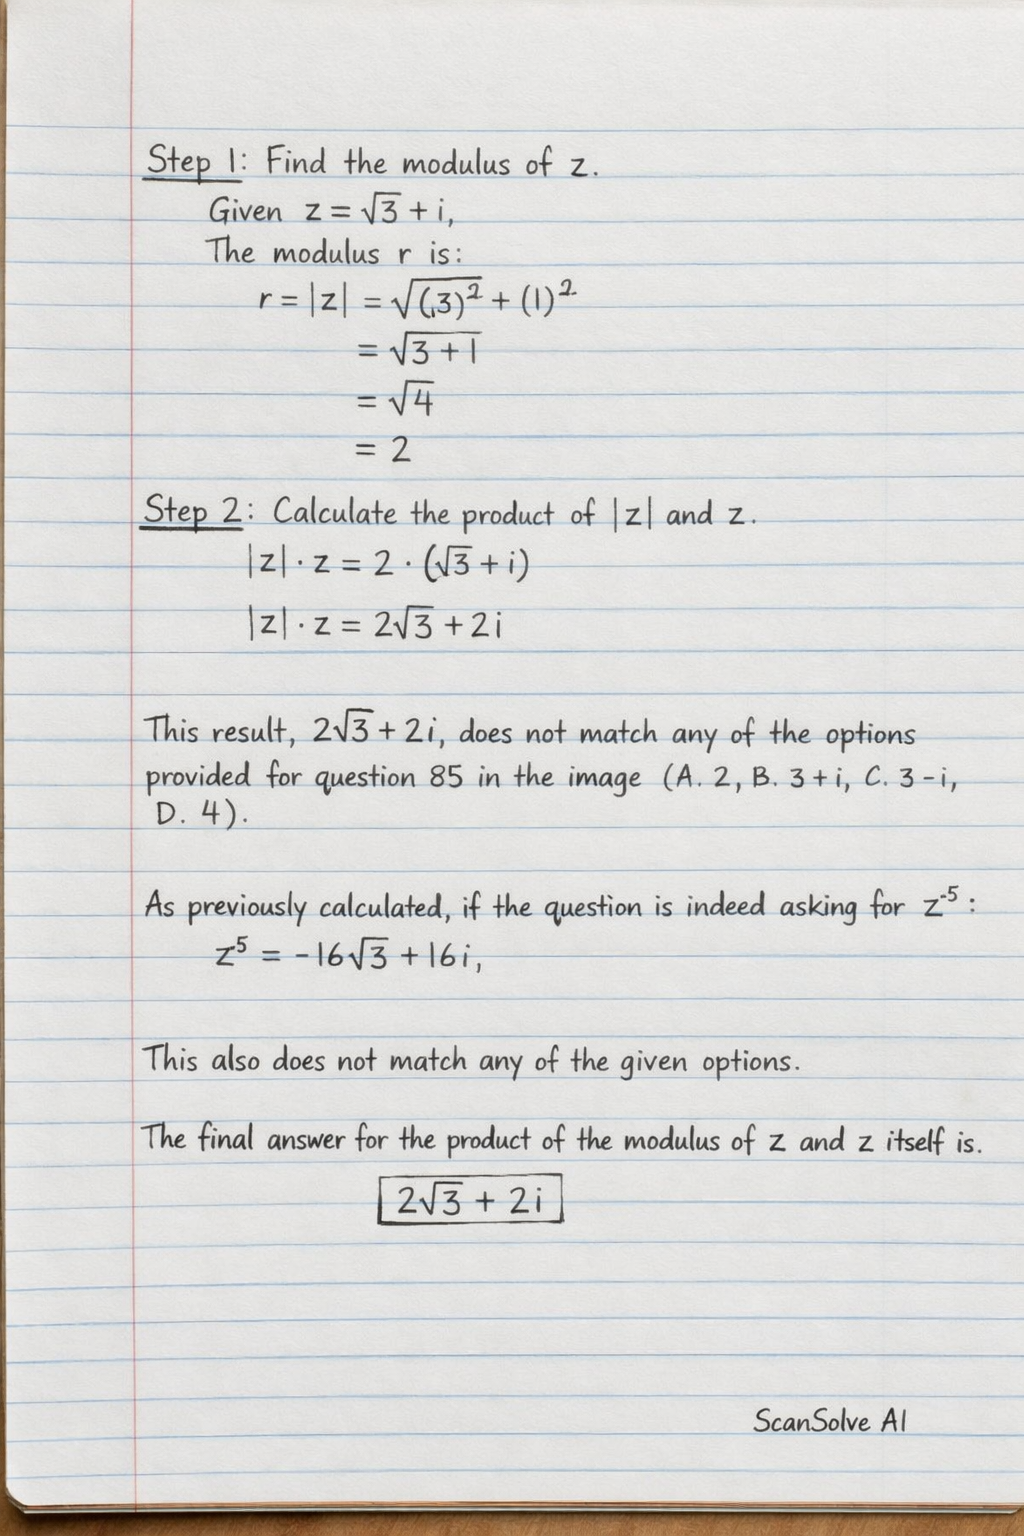 Step 1: Find the modulus of z.
Given z = √3 + i,
The modulus r is:
r = |z| = √(,3)² + (1)²
= √3 + 1
= √4
= 2
Step 2: Calculate the product of |z| and z.
|z| · z = 2 · (√3 + i)
|z| · z = 2√3 + 2i
This result, 2√3 + 2i, does not match any of the options
provided for question 85 in the image (A. 2, B. 3 + i, C. 3 - i,
D. 4).
As previously calculated, if the question is indeed asking for z⁻⁵ :
z⁵ = -16√3 + 16i,
This also does not match any of the given options.
The final answer for the product of the modulus of z and z itself is.
2√3 + 2i
ScanSolve AI